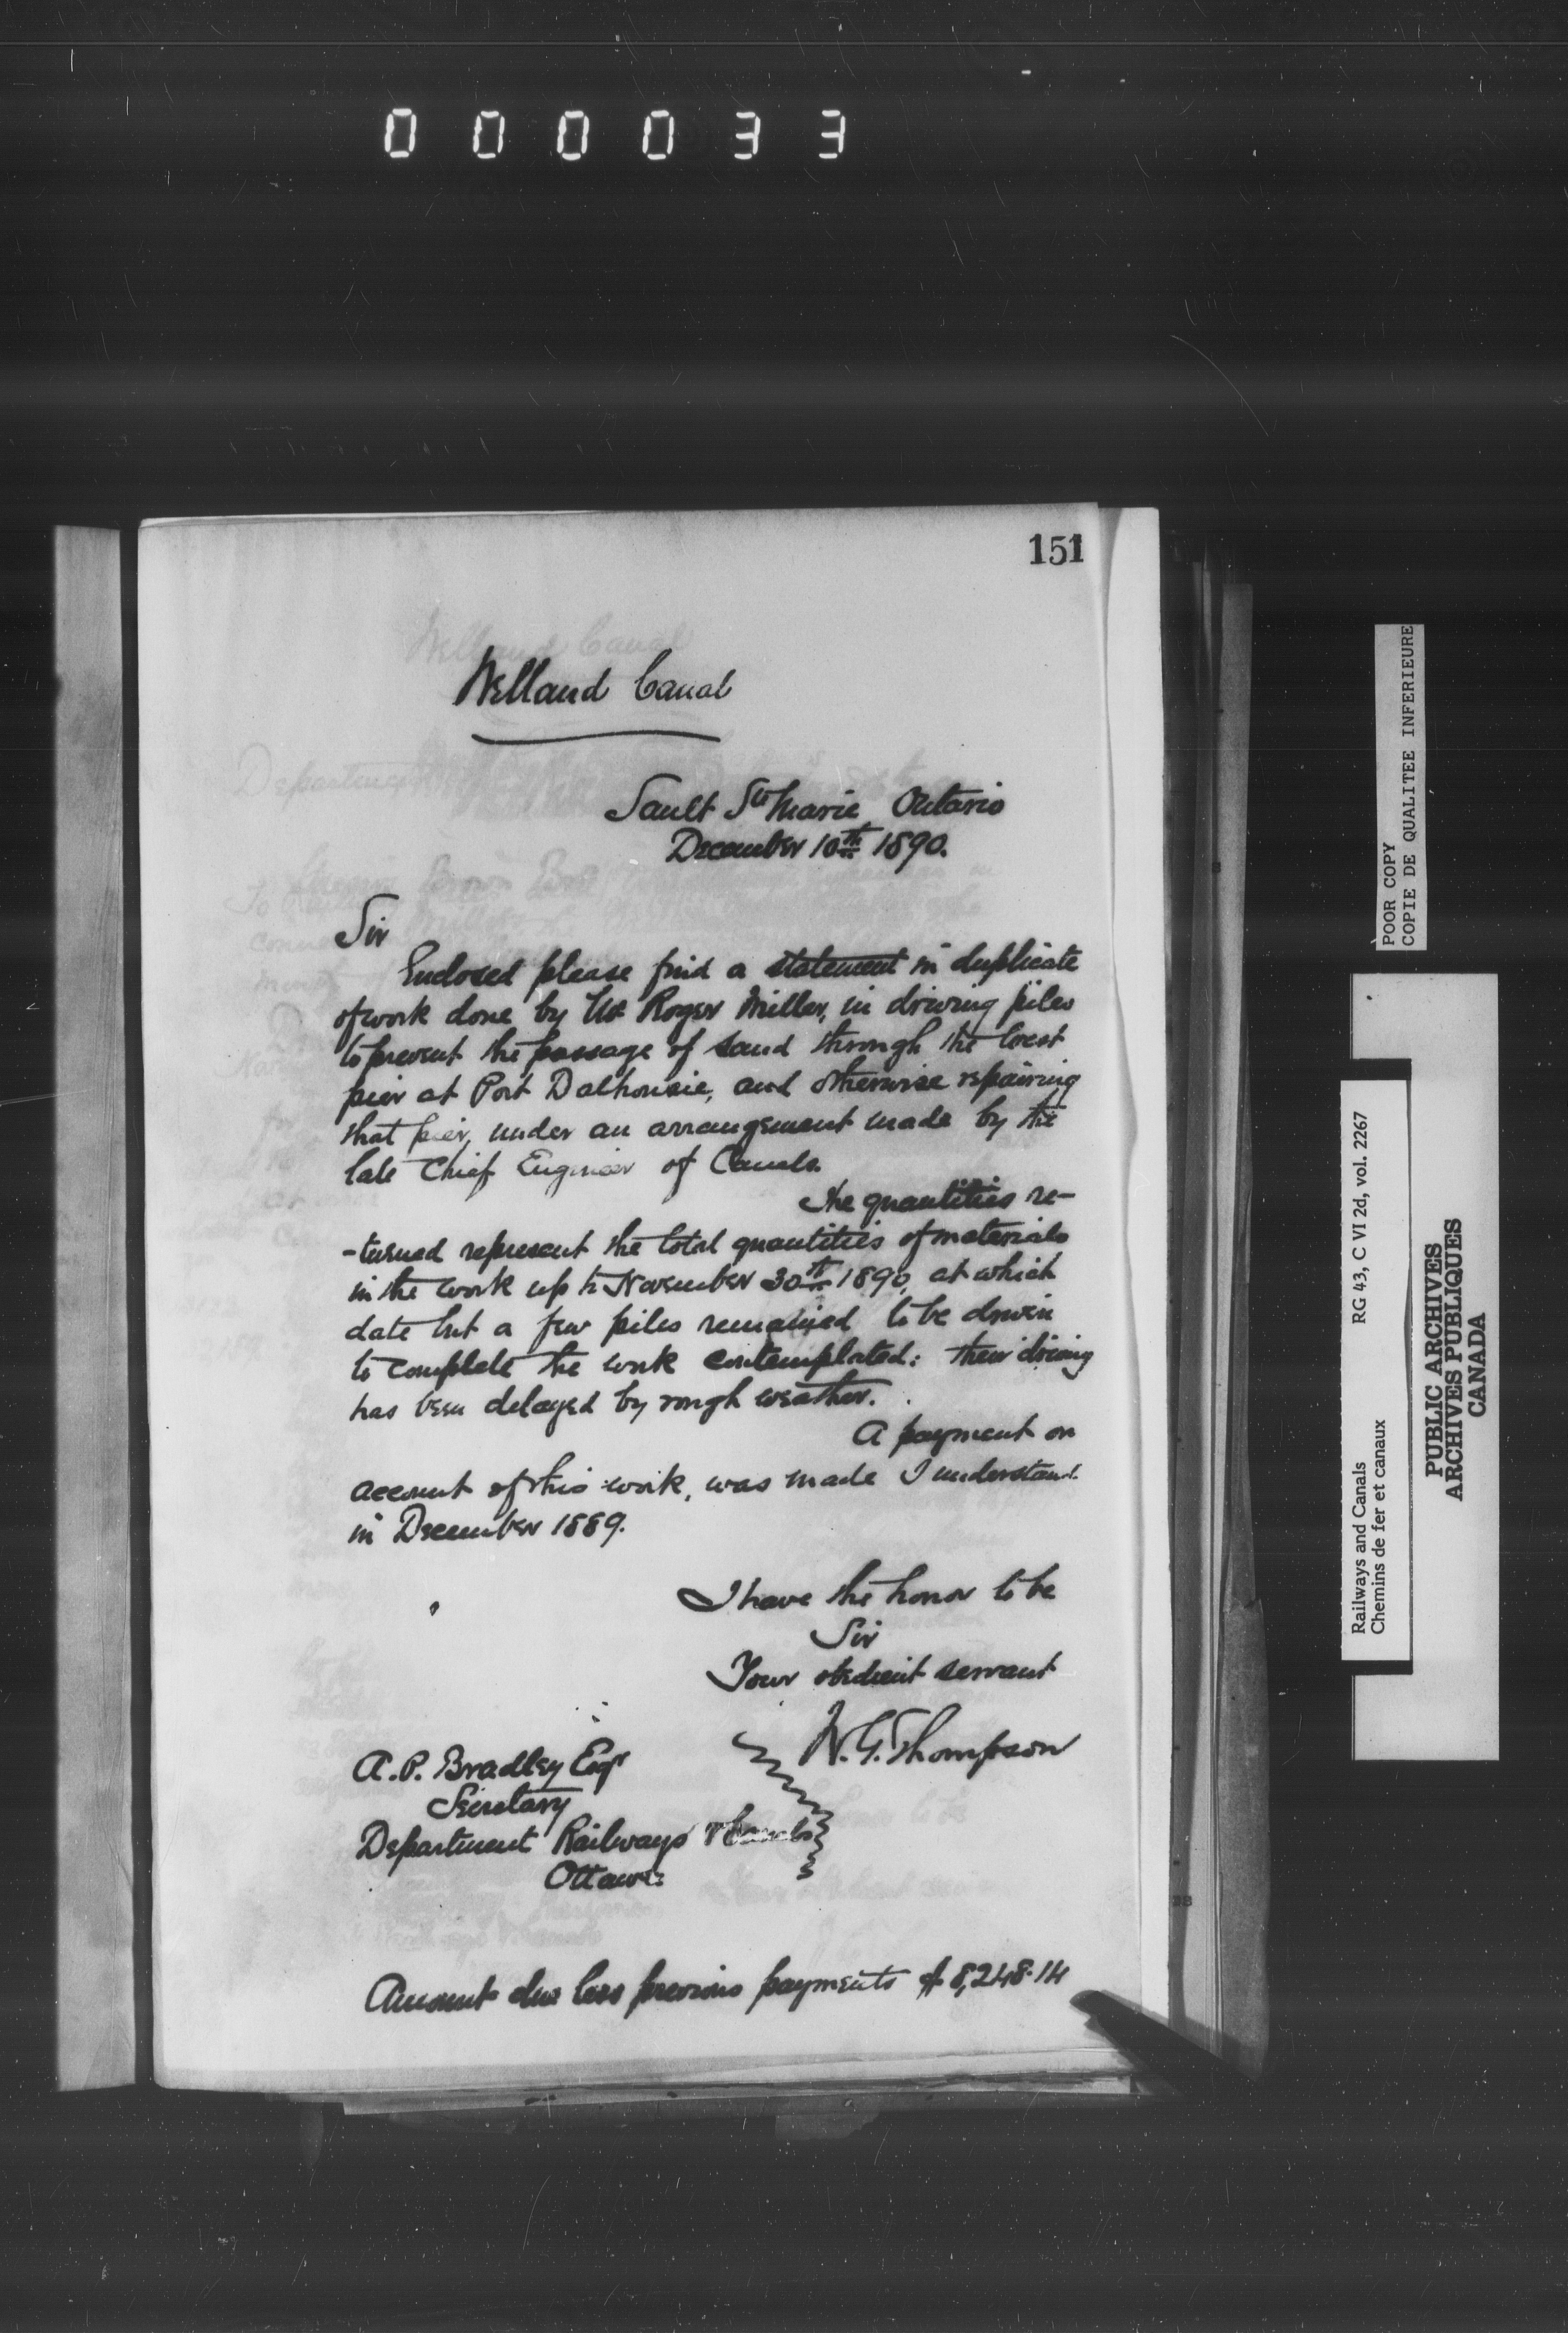 0 0 0 0 3 3
151
Welland Canal
Sault Ste Marie Ontario
December 10th 1890.
Sir
Enclosed please find a statement in duplicate
of work done by Mr Roger Miller, in driving piles
to prevent the passage of sand through the West
pier at Port Dalhousie, and otherwise repairing
that pier, under an arrangement made by the
late Chief Engineer of Canals.
The quantities re-
-turned represent the total quantities of materials
in the work up to November 30th 1890, at which
date but a few piles remained to be driven
to complete the work contemplated: their driving
has been delayed by rough weather.
A payment on
account of this work, was made I understand
in December 1889.
I have the honor to be
Sir
Your obedient servant
W. G. Thompson
A. P. Bradley Esqr
Secretary
Department Railways & Canals
Ottawa.
Amount due less previous payments $8,248.14
POOR COPY
COPIE DE QUALITEE INFERIEURE
Railways and Canals RG 43, C VI 2d, vol. 2267
Chemins de fer et canaux
PUBLIC ARCHIVES
ARCHIVES PUBLIQUES
CANADA